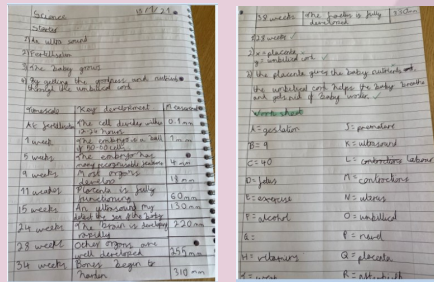 Science
Starter
1) An ultra sound
2) Fertilisation
3) The baby grows
4) By getting the goodness and nutrients
through the umbilical cord
Timescale Key development Measurement
At fertilisation The cell divides within 0.1mm
12-20 hours
1 week The embryo is a ball 1mm
of 50-60 cells
5 weeks The embryo has 4mm
many recognisable features
9 weeks Most organs 18mm
develop
11 weeks Placenta is fully 60mm
functioning
15 weeks An ultrasound may 130mm
detect the sex of the baby
24 weeks The brain is developing 220mm
rapidly
28 weeks Other organs are 255mm
well developed
34 weeks Bones begin to 310mm
harden
38 weeks The foetus is fully 330mm
developed
1) 38 weeks
2) x = placenta
y = umbilical cord
3) the placenta gives the baby nutrients and
the umbilical cord helps the baby breathe
and gets rid of baby waste
Work sheet
A = gestation
B = 9
C = 40
D = fetus
E = exercise
F = alcohol
G =
H = vitamins
J = premature
K = ultrasound
L = contractions labour
M = contractions
N = uterus
O = umbilical
P = navel
Q = placenta
R = afterbirth